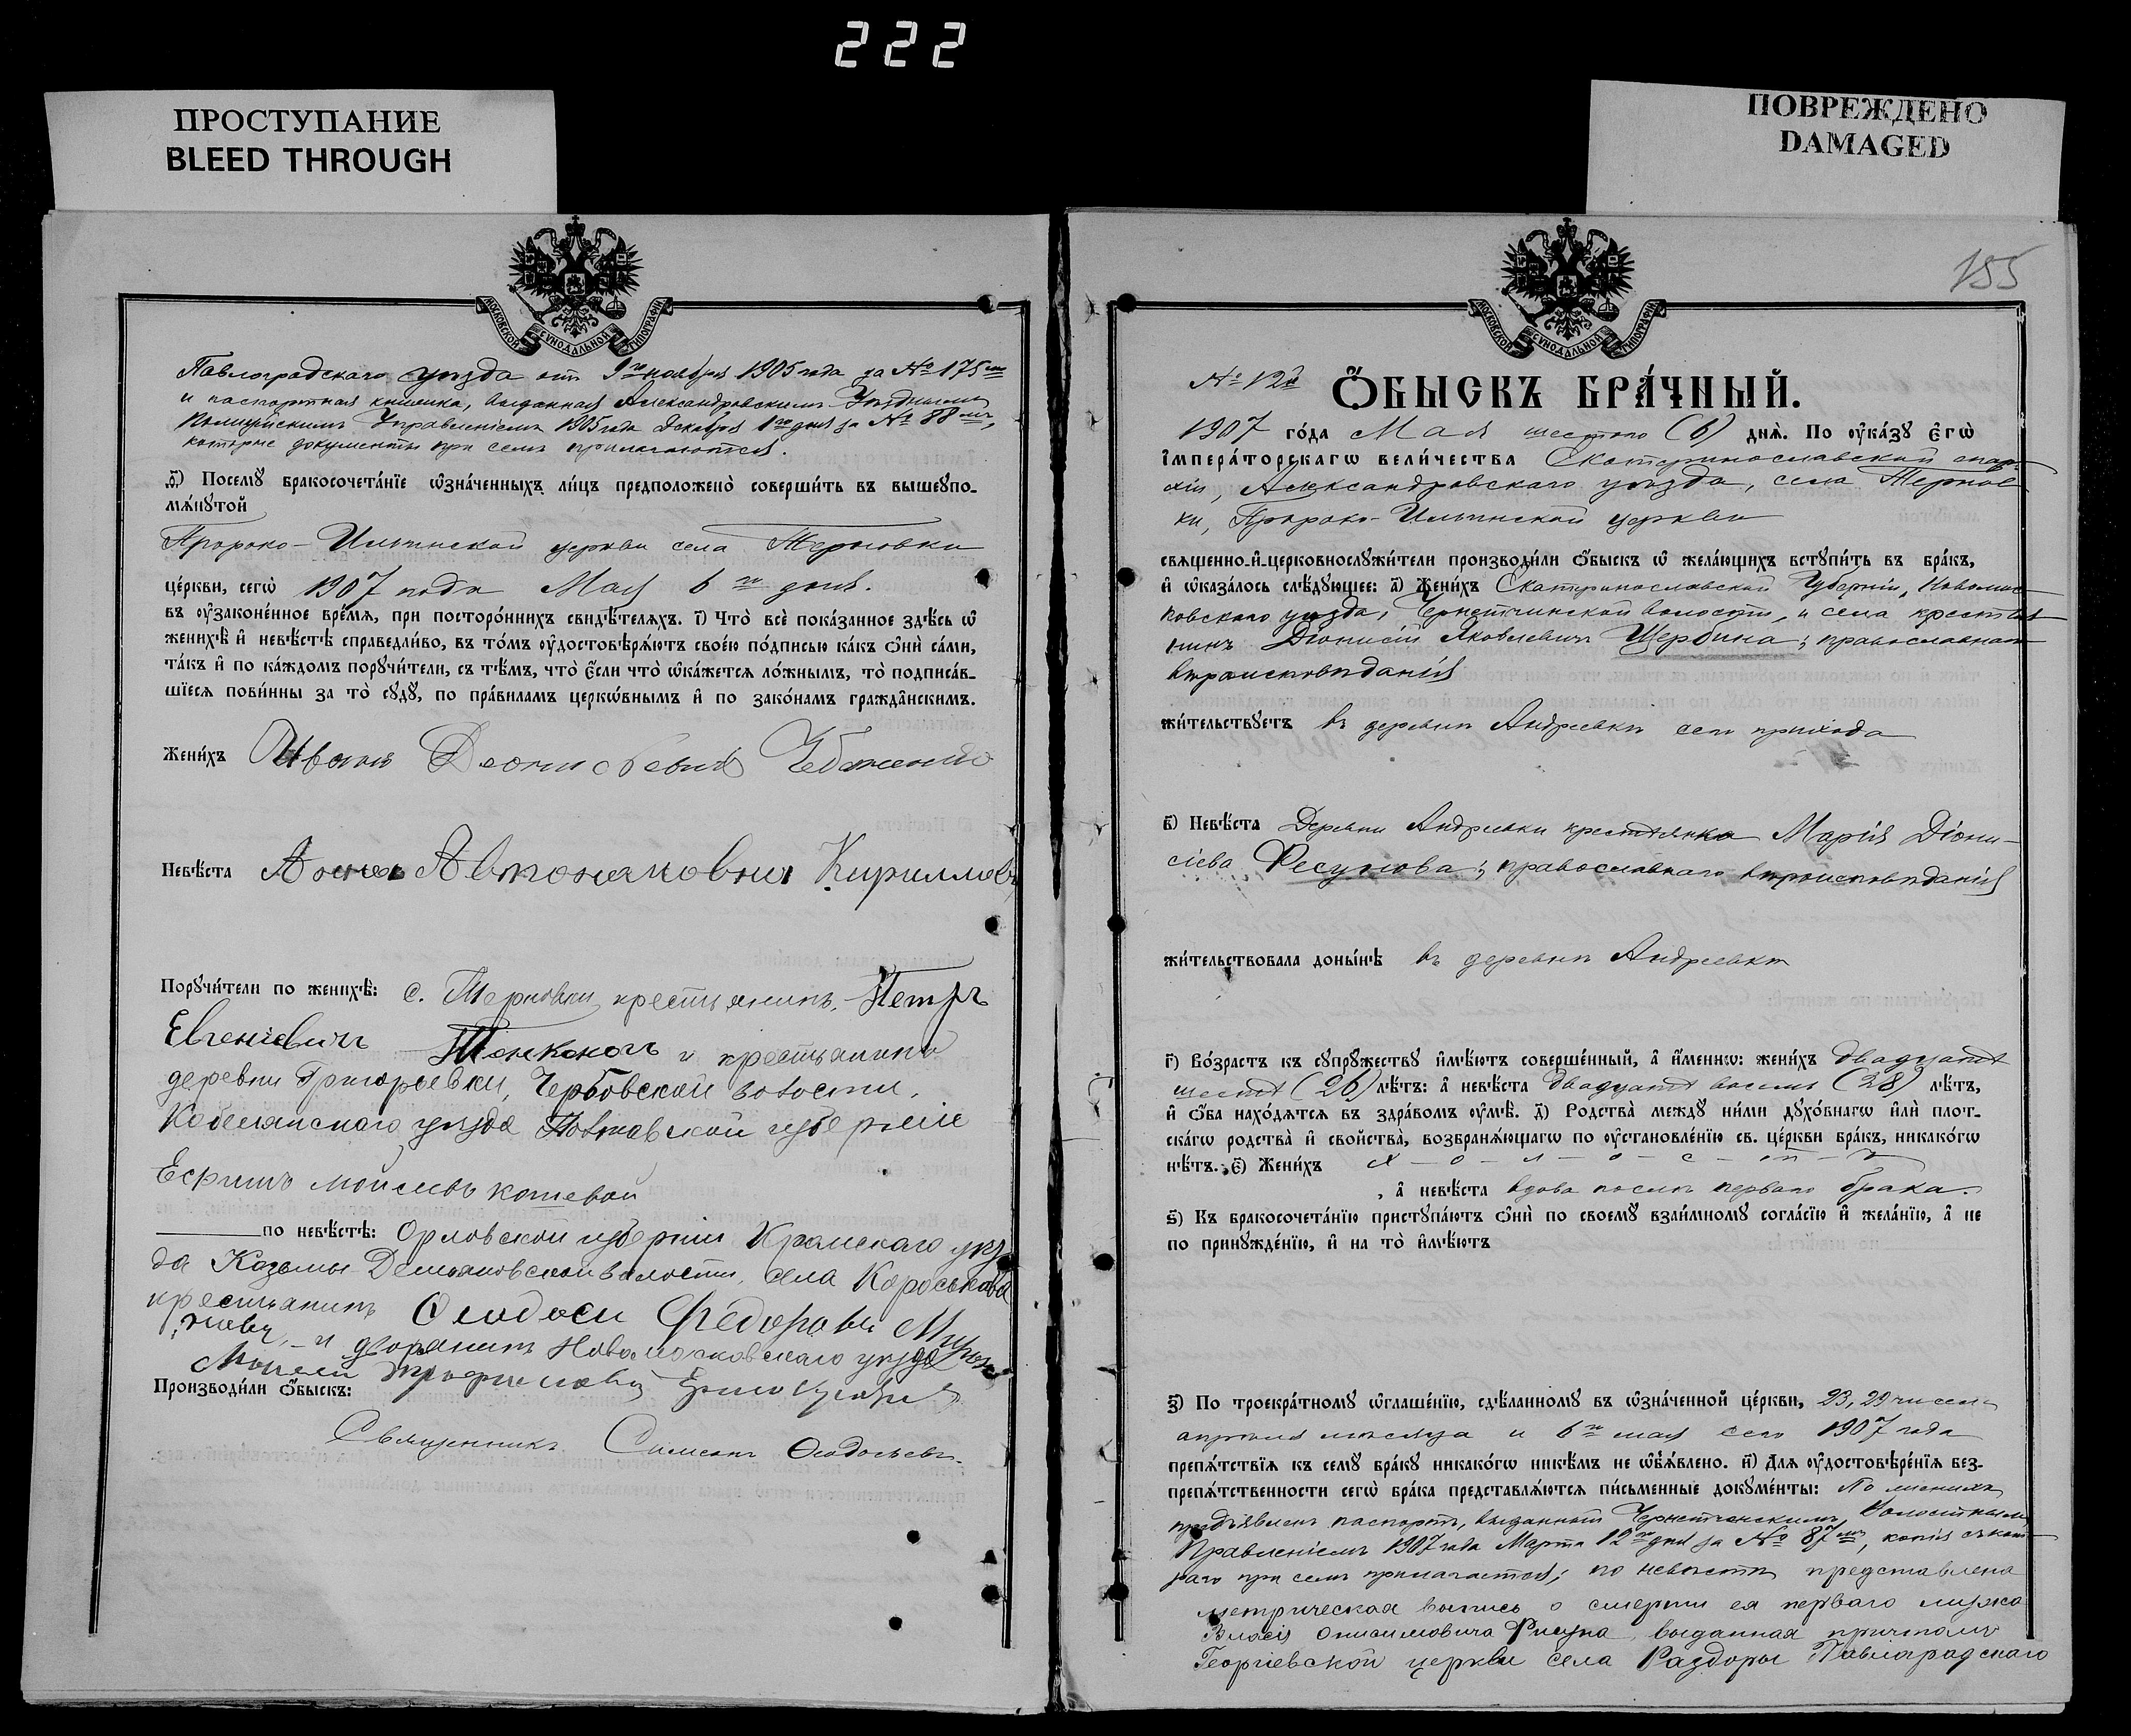 222
ПРОСТУПАНИЕ
BLEED THROUGH
ПОВРЕЖДЕНО
DAMAGED
МОСКОВСКОЙ СУНОДАЛЬНОЙ ТИПОГРАФІИ
Павлоградскаго уѣзда отъ 9го ноября 1905 года за № 175мъ
и паспортная книжка, выданная Александровскимъ Уѣзднымъ
Полицейскимъ Управленіемъ 1905 года Декабря 1го дня за № 88мъ,
которые документы при семъ прилагаются.
ѳ҃) Посемꙋ бракосочета́нїе ѡ҆зна́ченныхъ ли́цъ предположено̀ соверши́ть въ вышеꙋпо-
мѧ́нꙋтой
Пророко-Ильинской церкви села Терновки
це́ркви, сегѡ̀ 1907 года Мая 6го дня.
въ ᲂу҆законе́нное вре́мѧ, при посторо́ннихъ свидѣ́телѧхъ. і҃) Что̀ всѐ пока́занное здѣ́сь ѡ҆
женихѣ̀ и҆ невѣ́стѣ справедли́во, въ то́мъ ᲂу҆достовѣрѧ́ютъ свое́ю по́дписью ка́къ ѻ҆нѝ са́ми,
та́къ и҆ по ка́ждомъ порꙋчи́тели, съ тѣ́мъ, что̀ є҆́сли что̀ ѡ҆ка́жетсѧ ло́жнымъ, то̀ подписа́в-
шїесѧ пови́нны за то̀ сꙋдꙋ̀, по пра́виламъ церкѡ́внымъ и҆ по зако́намъ гражда̑нскимъ.
Жени́хъ Иванъ Деонисьевичъ
Невѣ́ста Анна Автономовна Кириллов
Порꙋчи́тели по женихѣ̀: с. Терновки крестьянинъ Петръ
Евгеніевичъ и крестьянинъ
деревни Григорьевки, волости,
Кобелянскаго уѣзда Полтавской губерніи
Моисеевъ Кошевой
по невѣ́стѣ: Орловской губерніи Кромскаго уѣз
да Козьмы Демьяновской волости, села Короськова
крестьянинъ Ѳеодоси Федоровъ
и дворянинъ Новомосковскаго уѣзда
Производи́ли ѻ҆́быскъ:
Священникъ Симеонъ Ѳеодосьевъ.
МОСКОВСКОЙ СУНОДАЛЬНОЙ ТИПОГРАФІИ
155
№ 12й Ѻ҆́БЫСКЪ БРА́ЧНЫЙ.
1907 го́да Мая шестого (6) днѧ̀. По ᲂу҆ка́зꙋ є҆гѡ̀
і҆мпера́торскагѡ вели́чества Екатеринославской епар-
хіи, Александровскаго уѣзда, села Тернов-
ки, Пророко-Ильинской церкви
свѧщенно-и҆-церковнослꙋжи́тели производи́ли ѻ҆́быскъ ѡ҆ жела́ющихъ встꙋпи́ть въ бра́къ,
и҆ ѡ҆каза́лось слѣ́дꙋющее: а҃) Жени́хъ Екатеринославской Губерніи, Новомос-
ковскаго уѣзда, Чернетчинской волости, и села крестья-
нинъ Діонисій Яковлевичъ Щербина; православнаго
вѣроисповѣданія
жи́тельствꙋетъ въ деревнѣ Андреевкѣ сего прихода
в҃) Невѣ́ста Деревни Андреевки крестьянка Марія Діони-
сіева Ресунова; православнаго вѣроисповѣданія
жи́тельствовала доны́нѣ въ деревнѣ Андреевкѣ
г҃) Во́зрастъ къ сꙋпрꙋ́жествꙋ и҆мѣ́ютъ соверше́нный, а҆ и҆́меннѡ: жени́хъ двадцать
шесть (26) лѣ́тъ: а҆ невѣ́ста двадцать восемь (28) лѣ́тъ,
и҆ ѻ҆́ба нахо́дѧтсѧ въ здра́вомъ ᲂу҆мѣ̀. д҃) Родства̀ междꙋ ни́ми дꙋхо́внагѡ и҆лѝ плот-
ска́гѡ родства̀ и҆ свойства̀, возбранѧ́ющагѡ по ᲂу҆становле́нїю св. це́ркви бра́къ, никако́гѡ
нѣ́тъ. є҃) Жени́хъ х-о-л-о-с-т-ъ
, а҆ невѣ́ста вдова послѣ перваго брака.
ѕ҃) Къ бракосочета́нїю пристꙋпа́ютъ ѻ҆нѝ по своемꙋ̀ взаи́мномꙋ согла́сїю и҆ жела́нїю, а҆ не
по принꙋжде́нїю, и҆ на то̀ и҆мѣ́ютъ
з҃) По троекра́тномꙋ ѡ҆глаше́нїю, сдѣ́ланномꙋ въ ѡ҆зна́ченной це́ркви, 23, 29 чиселъ
апрѣля мѣсяца и 6го мая сего 1907 года
препѧ́тствїѧ къ семꙋ̀ бра́кꙋ никако́гѡ никѣ́мъ не ѡ҆б̾ѧ́влено. и҃) Длѧ ᲂу҆достовѣре́нїѧ без-
препѧ́тственности сегѡ̀ бра́ка представлѧ́ютсѧ пи́сьменные докꙋме́нты: По женихѣ
предъявленъ паспортъ, выданный Чернетчинскимъ Волостнымъ
Правленіемъ 1907 года Марта 12го дня за № 87мъ, копія съ кото-
раго при семъ прилагается; по невѣстѣ представлена
метрическая выпись о смерти ея перваго мужа
Власія Онисимовича Рисуна, выданная причтомъ
Георгіевской церкви села Раздоры Павлоградскаго